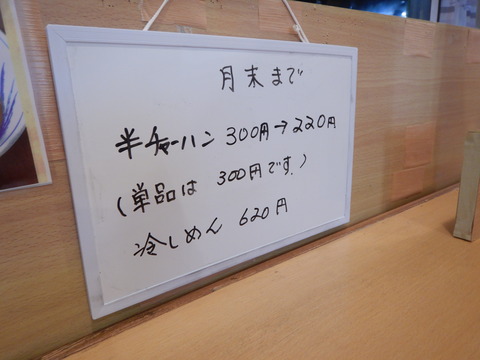 月末まで
半チャーハン 300円→220円
(単品は 300円です。)
冷しめん 620円